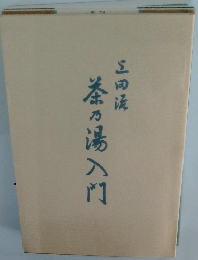 上田流
茶乃湯入門